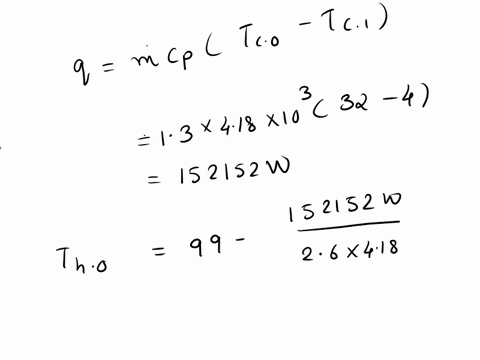 q = ṁ cp ( Tc.o - Tc.1 )
= 1.3 × 4.18 × 10³ ( 32 - 4)
= 152152 W
Th.o = 99 - 152152 W / 2.6 × 4.18